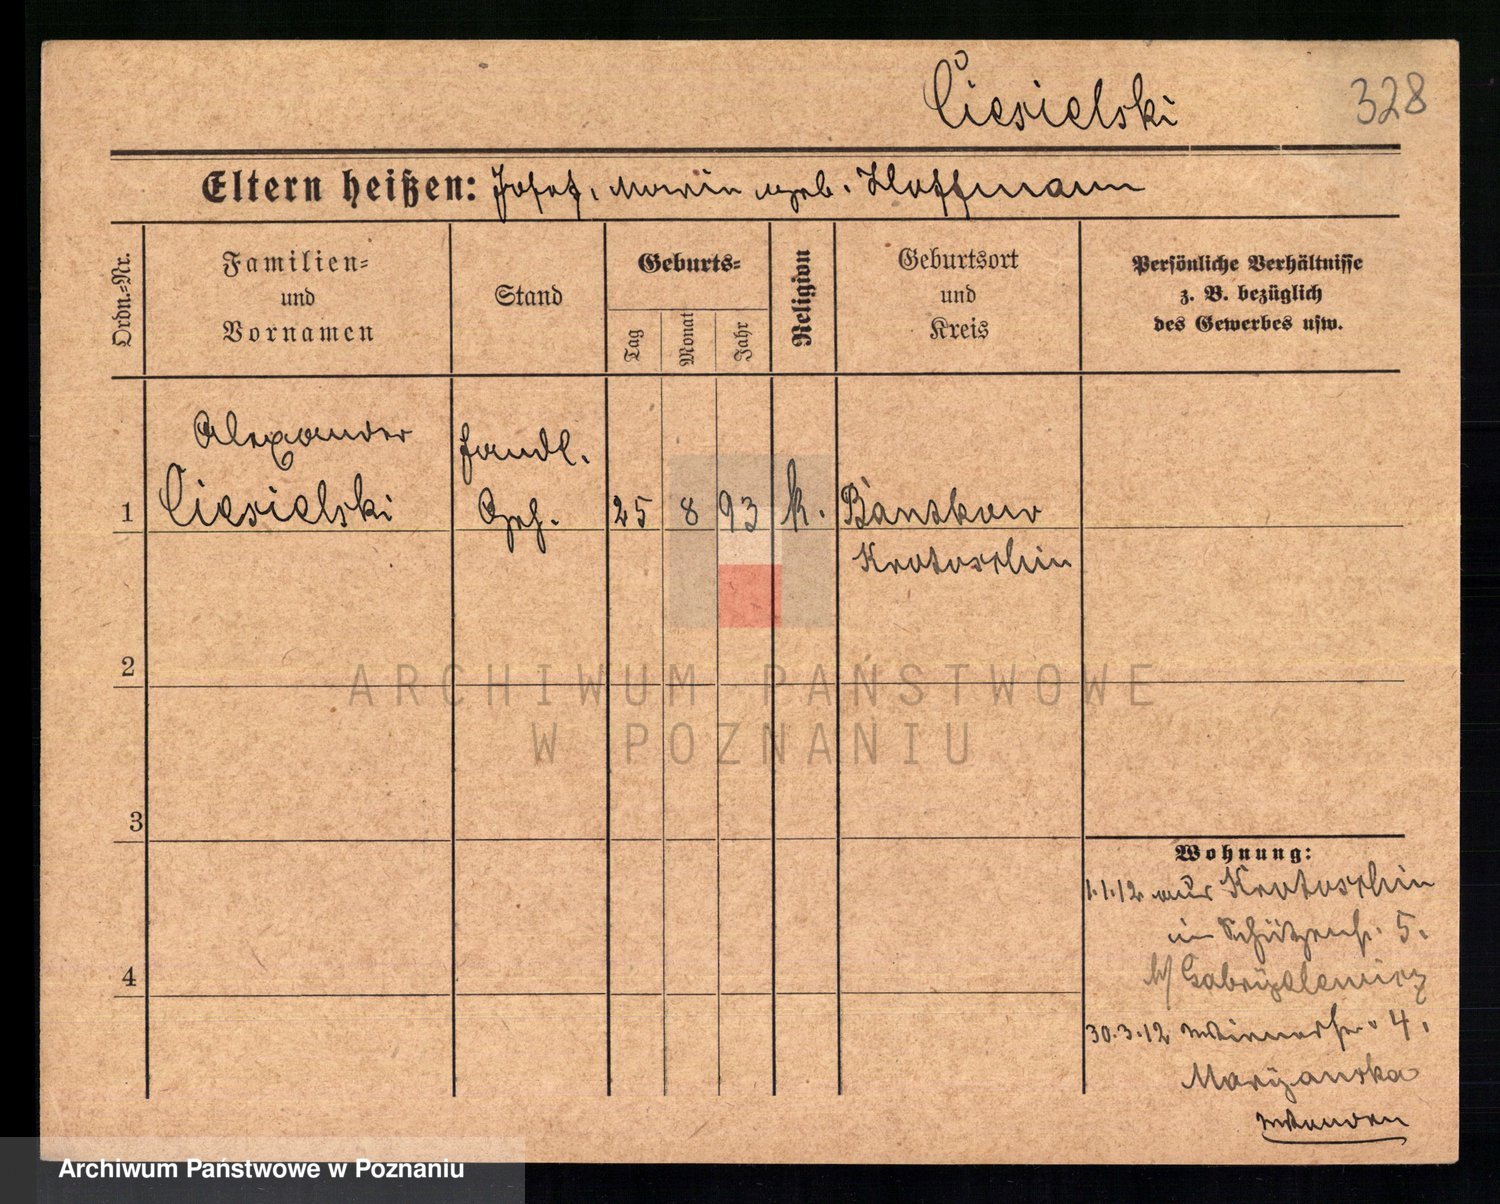 Ciesielski
328
Eltern heißen: Josef, Maria geb. Hoffmann
Ordn.=Nr.
Familien=
und
Vornamen
Stand
Geburts=
Tag
Monat
Jahr
Religion
Geburtsort
und
Kreis
Persönliche Verhältnisse
z. B. bezüglich
des Gewerbes usw.
Alexander
Ciesielski
Handl.
Geh.
1
25
8
93
k.
Krotoschin
2
ARCHIWUM PAŃSTWOWE
W POZNANIU
3
Wohnung:
1.1.12 aus Krotoschin
in Schützenstr. 5.
b/ Gabryelewicz
4
30.3.12 4.
Archiwum Państwowe w Poznaniu